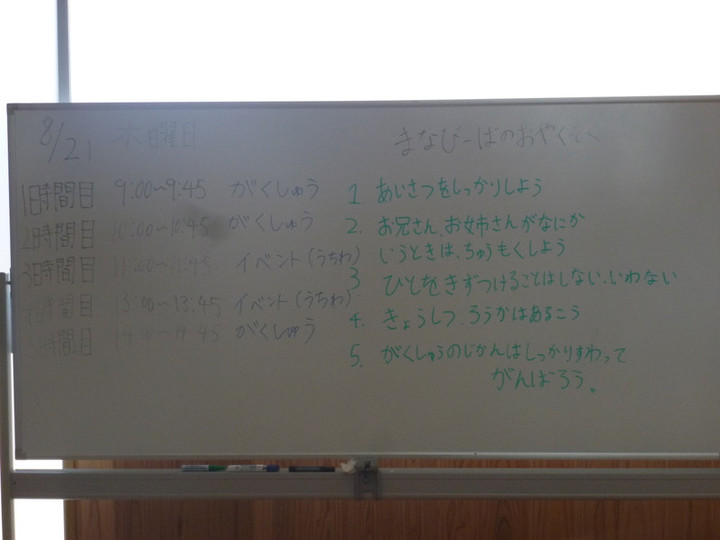 8/21 木曜日
1時間目 9:00〜9:45 がくしゅう
2時間目 10:00〜10:45 がくしゅう
3時間目 11:00〜11:45 イベント(うちわ)
4時間目 13:00〜13:45 イベント(うちわ)
5時間目 14:00〜14:45 がくしゅう
まなびーばのおやくそく
1 あいさつをしっかりしよう
2. お兄さん、お姉さんがなにか
いうときは、ちゅうもくしよう
3 ひとをきずつけることはしない、いわない
4. きょうしつ、ろうかはあるこう
5. がくしゅうのじかんはしっかりすわって
がんばろう。